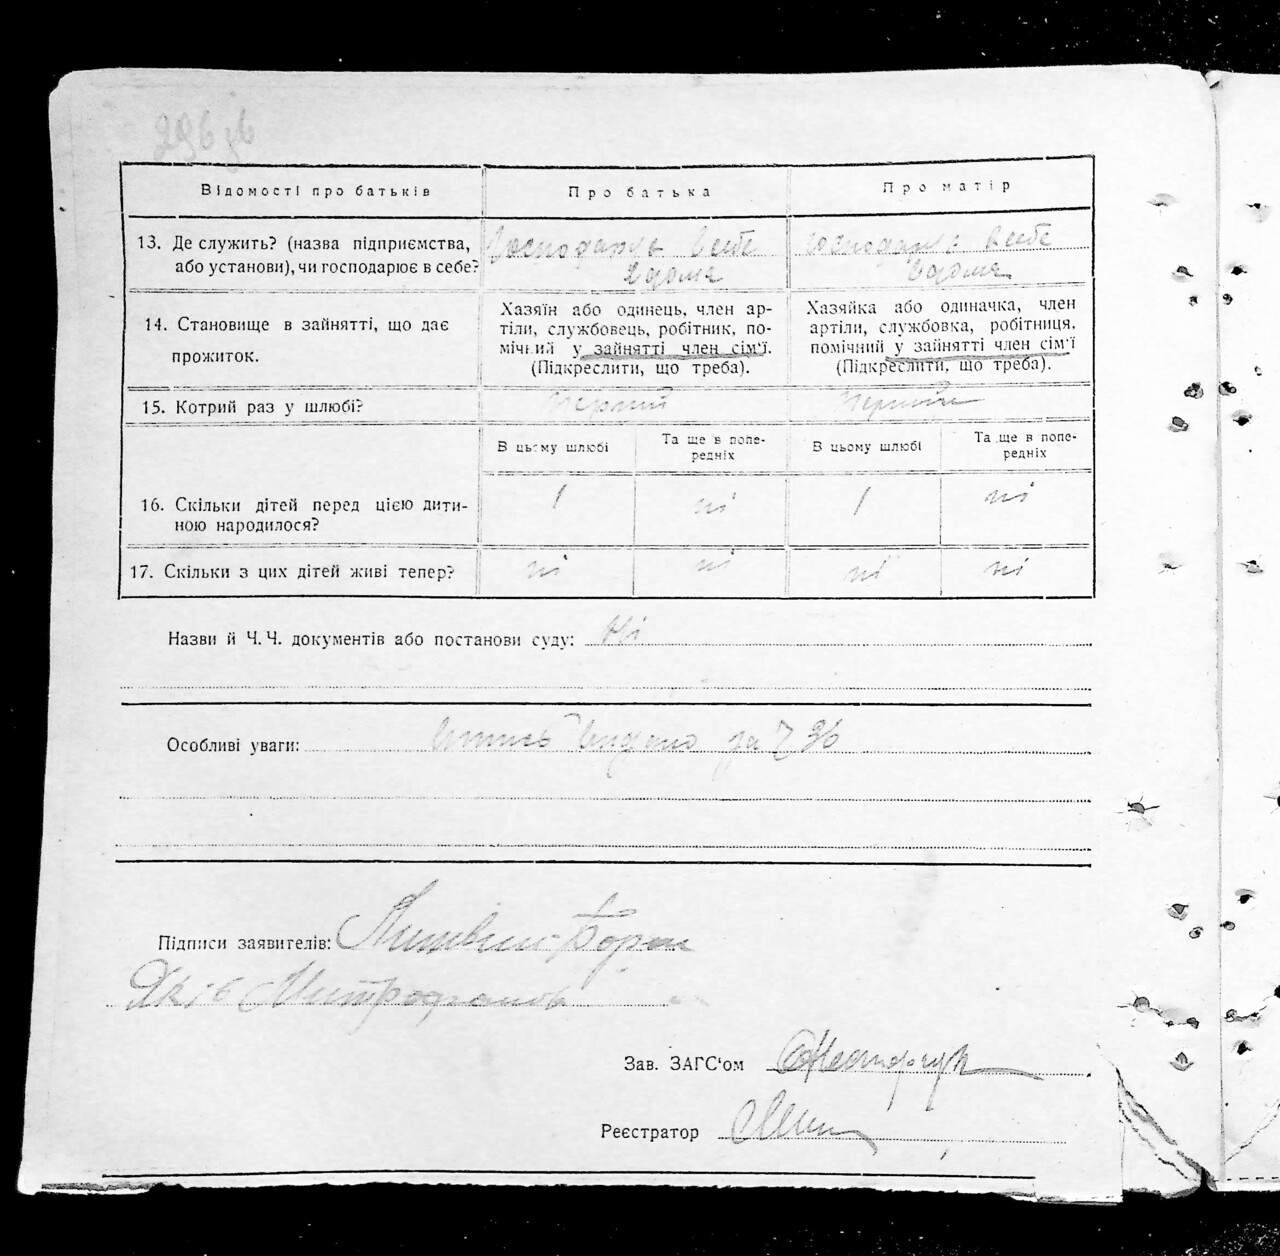 296 зв
Відомості про батьків
Про батька
Про матір
13. Де служить? (назва підприємства,
або установи), чи господарює в себе?
Господарує в себе
вдома
господарує в себе
вдома
14. Становище в зайнятті, що дає
прожиток.
Хазяїн або одинець, член ар-
тілі, службовець, робітник, по-
мічний у зайнятті член сім'ї.
(Підкреслити, що треба).
Хазяйка або одиначка, член
артілі, службовка, робітниця,
помічний у зайнятті член сім'ї
(Підкреслити, що треба).
15. Котрий раз у шлюбі?
Перший
Перший
В цьому шлюбі
Та ще в попе-
редніх
В цьому шлюбі
Та ще в попе-
редніх
16. Скільки дітей перед цією дити-
ною народилося?
1
ні
1
ні
17. Скільки з цих дітей живі тепер?
ні
ні
ні
ні
Назви й Ч. Ч. документів або постанови суду: Ні
Особливі уваги: видано за 7 36
Підписи заявителів: Литвин
Яків
Зав. ЗАГС'ом
Реєстратор